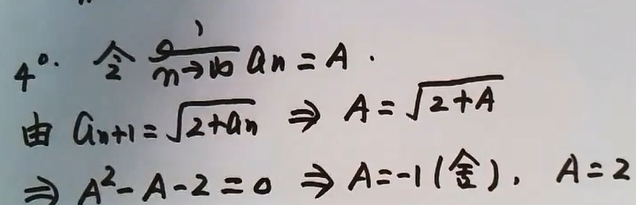 4°. 令 lim n→∞ aₙ = A.
由 aₙ₊₁ = √(2+aₙ) ⇒ A = √(2+A)
⇒ A² - A - 2 = 0 ⇒ A = -1 (舍), A = 2